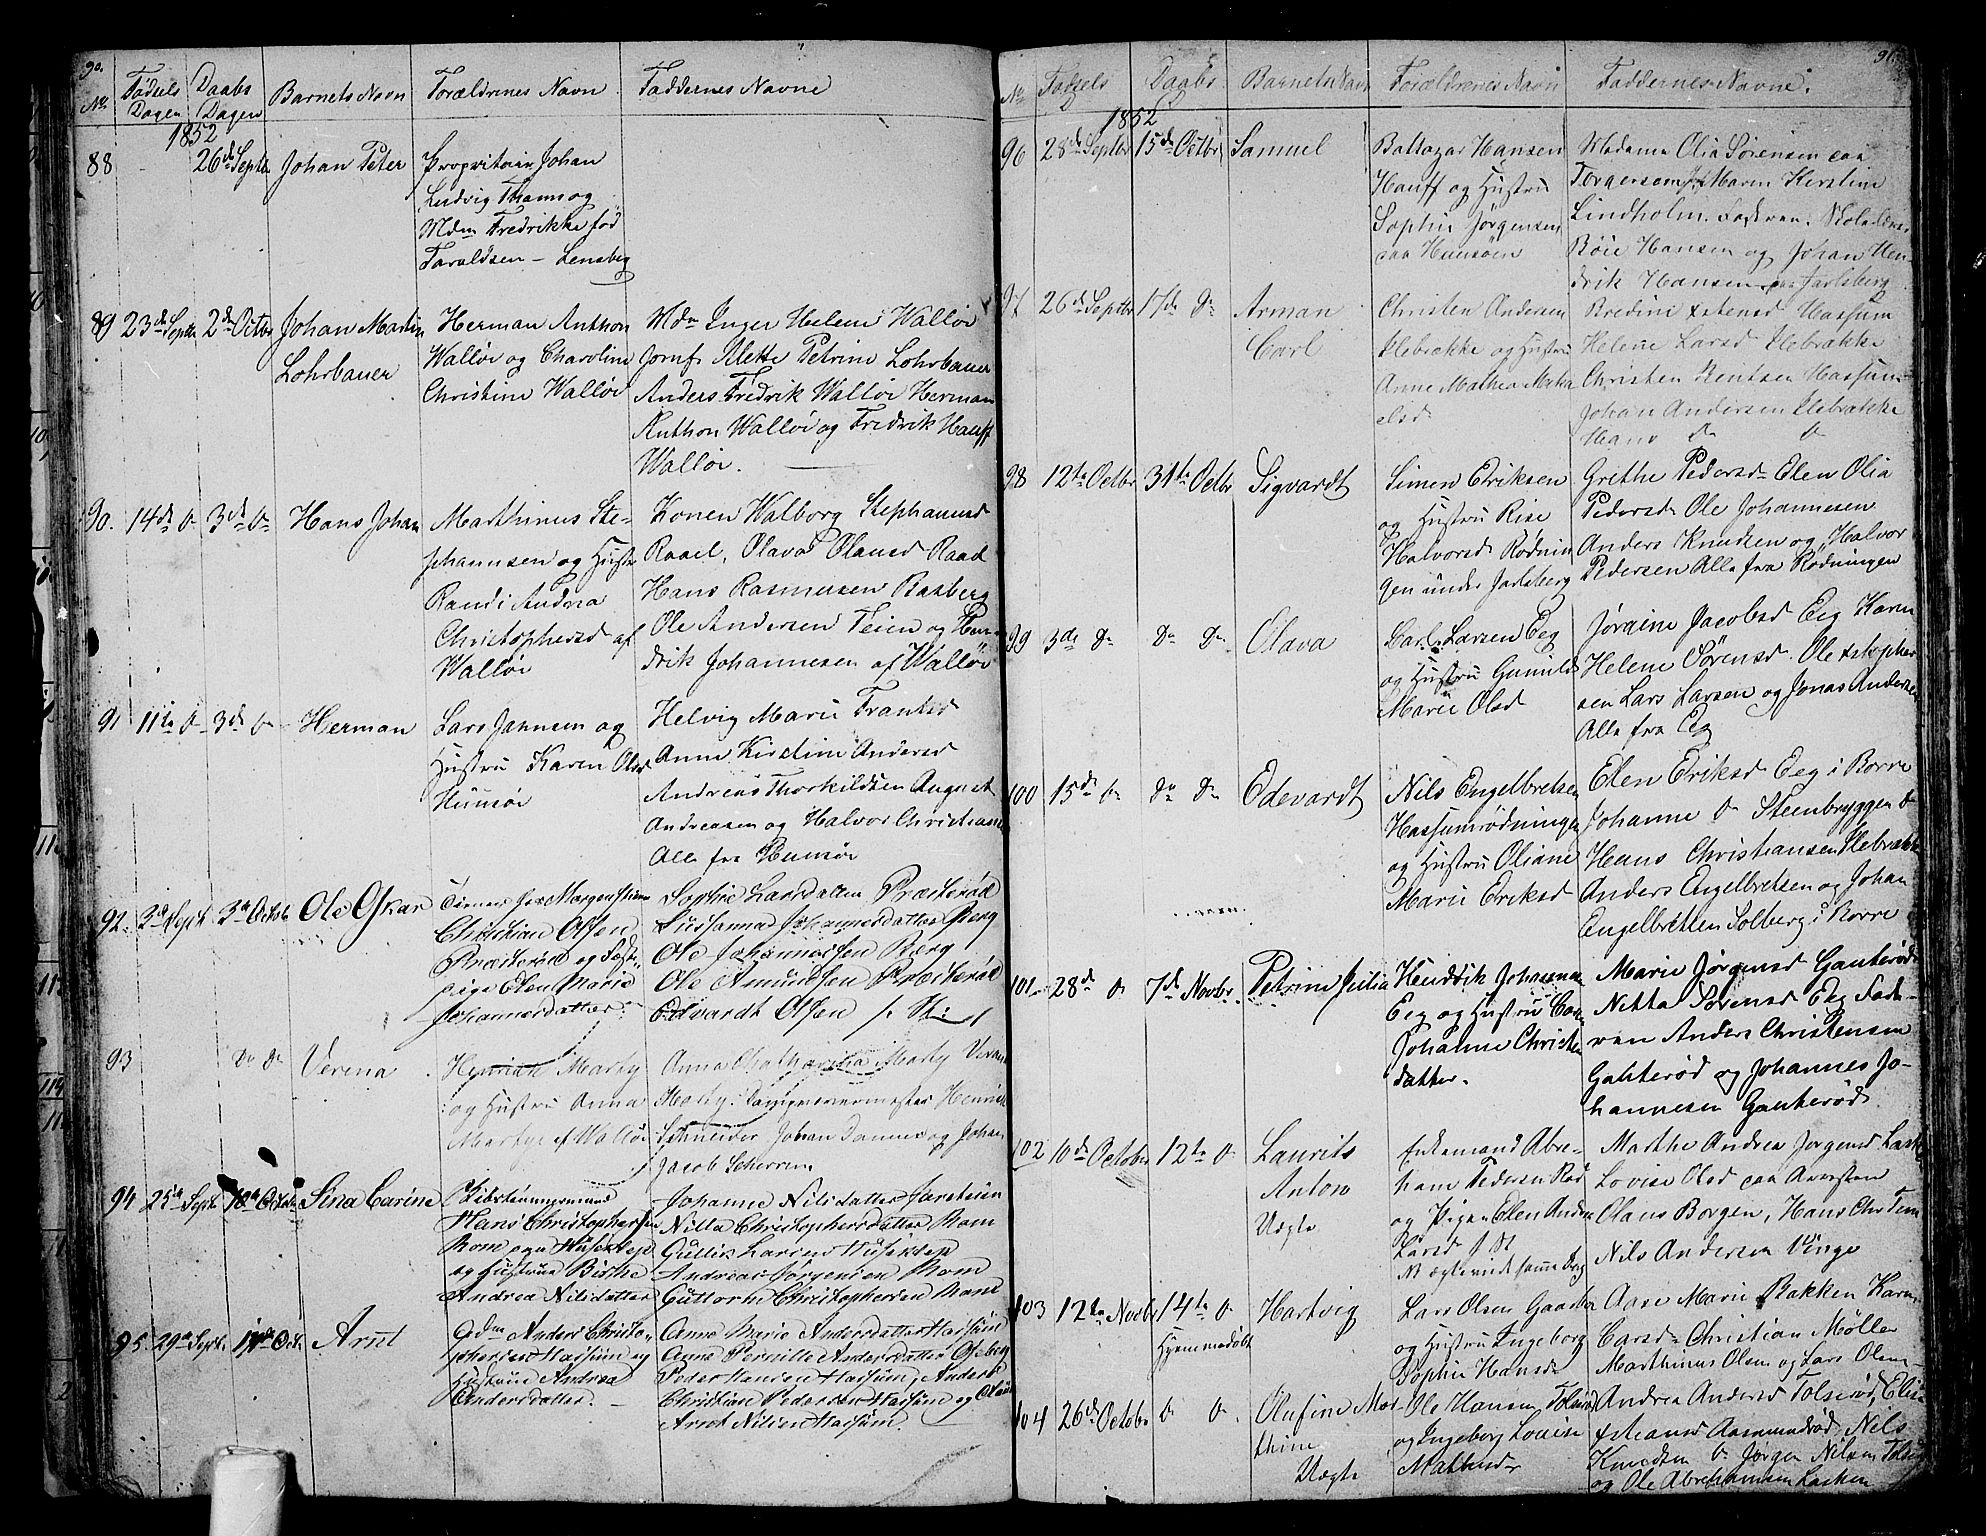 90.
No Fødsels Dagen Daabs Dagen Barnets Navn Forældrenes Navn Faddernes Navne
1852
88 26de Septbr Johan Peter Proprietair Johan
Ludvig Thams og
Mdm Fredrikke fød
Taraldsen - Lensberg
89 23de Septbr 2den Octbr Johan Martin Lohrbauer
Herman Anthon
Walløe og Charoline
Christine Walløe
Mdm Inger Helene Walløe
Jomfr. Alette Petrine Lohrbauer
Anders Fredrik Walløe Herman
Anthon Walløe og Fredrik Hauff
Walløe.
90. 14de do 3de do Hans Johan
Marthinus Ste-
phannsen og Hustr
Randi Andrea
Christophersd af
Walløe
Konen Walborg Stephansd
Raael, Olava Olausd Raael
Hans Rasmussen Basberg
Ole Andersen Teien og Hen-
drik Johannesen af Walløe
91 11te do 3de do Herman
Lars Jannsen og
Hustru Karen Olsd
Huusøe
Helvig Marie Frantsd
Anne Kirstine Andersd
Andreas Thorkildsen August
Andreasen og Halvor Christians
Alle fra Huusøe
92. 3de Sept. 3de Octob. Ole Oskar
Christian Olsen
Præsterød og Fæste-
pige Elen Marie
Johannesdatter.
Sophie Larsdatter Præsterød
Sussanna Johannesdatter Berg
Ole Johannesen Berg
Ole Amundsen Præsterød
Edvardt Olsen
93 do do Verena
Henrich Marty
og Hustru Anna
Marty af Walløe
Anna Chatharina Marty Verena
Marty
Schneider, Johan Danner og Johan
Jacob Scherrer
94 25de Sept. 10de Octob. Sina Carine
Hans Christophersen
Rom paa Huseklep
og Hustrue Birthe
Andrea Nilsdatter
Johanne Nilsdatter Jareteien
Nilla Christophersdatter Rom
Gullik Larsen Huseklep
Andreas Jørgensen Rom
Guttorm Christophersen Rom
95. 29de Sept. 17de Oct. Arnt
Gdm Anders Christo-
phersen Hassum og
Hustrue Andrea
Andersdatter.
Anne Marie Andersdatter Hassum
Anne Pernille Andersdatter Oseberg
Peder Hansen Hassum, Anders
Christian Pedersen Hassum og
Arnt Nilsen Hassum.
91.
No Fødsels D Daabs D Barnets Navn Forældrenes Navn Faddernes Navne.
1852
96 28de Septbr 15de Octbr Samuel
Baltazar Hansen
Hauff og Hustru
Sophie Jørgensen
paa Huusøen
Madame Olia Sørensen paa
Torgersøen, Maren Kirstine
Lindholm. Fadderen. Nicolai
Røie Hansen og Johan Hen-
drik Hansen paa Jarlsberg
97 26de Septbr 17de do Arman
Carl
Christen Andersen
Ilebrække og Hustru
Anne Mathea Mathi-
elsd
Bredine xstensd Hassum
Helene Larsd Ilebrække
Christen Bentsen Hassum
Johan Andersen Ilebrække
Hans do do
98 12te Octbr 31te Octbr Sigvardt
Simen Eriksen
og Hustru Rise
Halvorsd Rødnin
gen under Jarlsberg
Grethe Pedersd Elen Olia
Pedersd Ole Johannesen
Anders Knudsen og Halvor
Pedersen Alle fra Rødningen
99 3de do do do Olava
Carl Larsen Eeg
og Hustru Gunild
Marie Olsd
Jørgine Jacobsd Eeg Karen
Helene Sørensd. Ole xstopher
sen Lars Larsen og Jonas Andersen
Alle fra Eeg
100 15de do do do Edevardt
Nils Engelbretsen
Hassumrødningen
og Hustru Oliane
Marie Eriksd
Elen Eriksd Eeg i Borre
Johanne do Steenbryggen do
Hans Christiansen Ilebrække
Anders Engelbretsen og Johan
Engelbretsen Solberg i Borre
101 28de do 7de Novbr. Petrine Julia
Hendrik Johannes
Eeg og Hustru
Johanne Christen
datter.
Marie Jørgensd Gauterød
Nitta Sørensd Eeg Fad-
ren Anders Christensen
Gauterød og Johannes Jo-
hannesen Gauterød.
102 10de October 12te do Laurits
Anton
Uægte
Enkemand Abra-
ham Pedersen
og Pigen Elen Andrea
Larsd
Marthe Andrea Jørgensd
Lovise Olsd paa
Claus Borgen, Hans
Nils Andersen Vinge
103 12te Novbr 14te do Hartvig
Hjemmedøbt
Lars Olsen
og Hustru Ingeborg
Sophie Hansd
Aase Marie Bakken Karen
Larsd. Christian Møller
Marthinus Olsen og Lars Olsen
104 26de Octobr do do. Olufine Mar-
thine
Uægte
Ole Hansen Tolsrød
og Ingeborg Louise
Matisd
Andrea Andersd Tolsrød, Elise
xstiansd Aasmundrød, Nils
Knudsen do Jørgen Nilsen
og Ole Abrahamsen Lasken